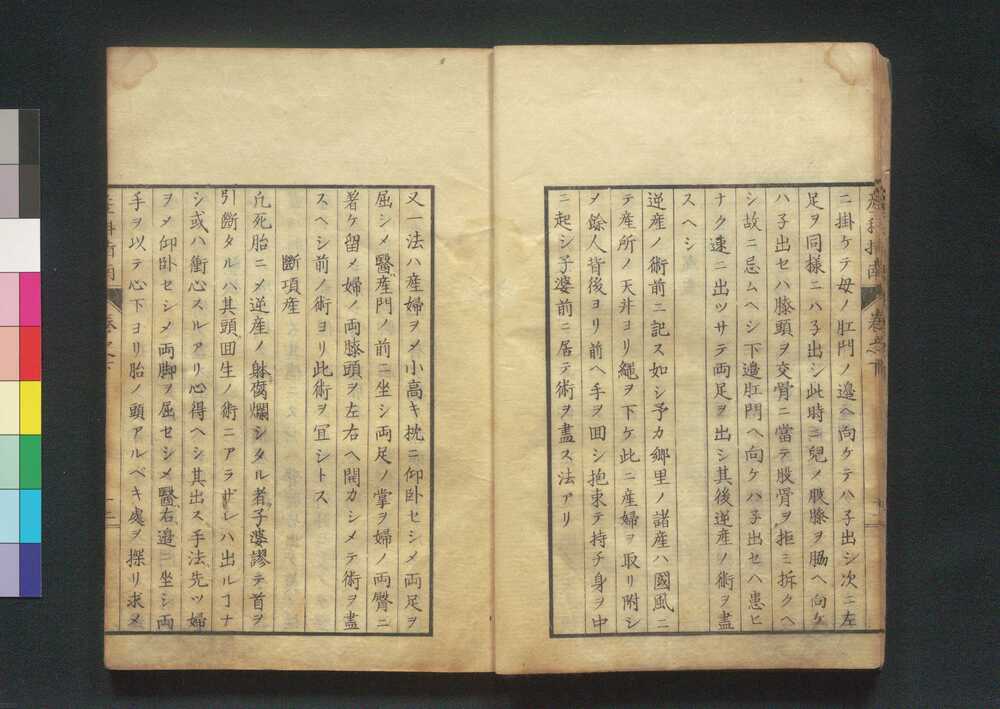 ニ掛ケテ母ノ肛門ノ邉ヘ向ケテハ子出シ次ニ左
足ヲ同様ニハ子出シ此時ニ兒ノ股膝ヲ脇ヘ向ケ
ハ子出セハ膝頭ヲ交骨ニ當テ股骨ヲ拒ミ拆クヘ
シ故ニ忌ムヘシ下邉肛門ヘ向ケハ子出セハ患ヒ
ナク速ニ出ツサテ両足ヲ出シ其後逆産ノ術ヲ盡
スヘシ
逆産ノ術前ニ記ス如シ予カ郷里ノ諸産ハ國風ニ
テ産所ノ天井ヨリ縄ヲ下ケ此ニ産婦ヲ取リ附シ
メ餘人背後ヨリ前ヘ手ヲ囬シ抱束テ持チ身ヲ中
ニ起シ子婆前ニ居テ術ヲ盡ス法アリ
又一法ハ産婦ヲメ小高キ枕ニ仰卧セシメ両足ヲ
屈シメ醫産門ノ前ニ坐シ両足ノ掌ヲ婦ノ両臀ニ
著ケ留メ婦ノ両膝頭ヲ左右ヘ開カシメテ術ヲ盡
スヘシ前ノ術ヨリ此術ヲ冝シトス
断項産
凢死胎ニメ逆産ノ躰腐爛シタル者子婆謬テ首ヲ
引断タルハ其頭囬生ノ術ニアラザレハ出ルヿナ
シ或ハ衝心スルアリ心得ヘシ其出ス手法先ツ婦
ヲメ仰卧セシメ両脚ヲ屈セシメ醫右邉ニ坐シ両
手ヲ以テ心下ヨリ胎ノ頭アルベキ處ヲ探リ求メ